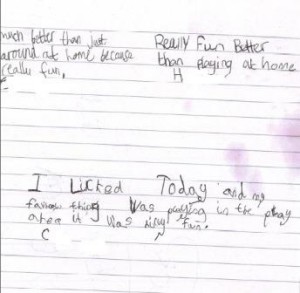 much better than just
around at home because
really fun.
Really Fun Better
than playing at home
H
I Licked Today and my
thing Was playing in the play
area it was fun.
C